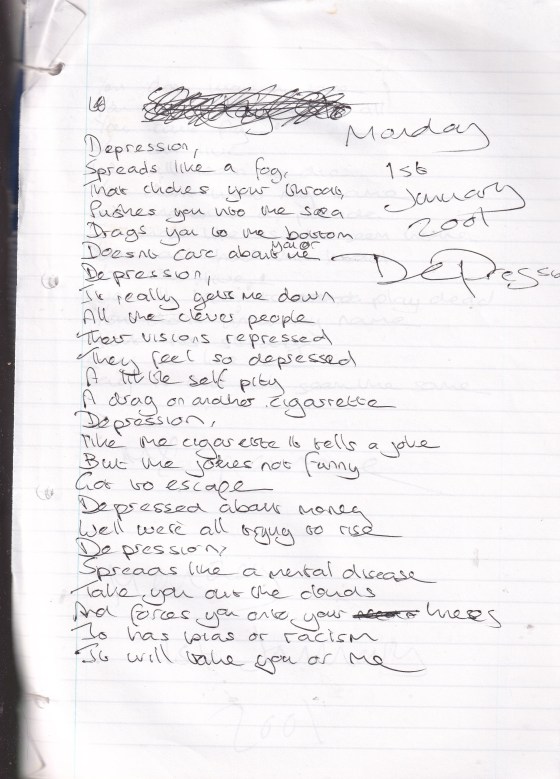 Monday
1st
January
2001
Depression
Depression,
Spreads like a fog,
That clides your throat,
Pushes you into the sea
Drags you to the bottom
Doesnt care about you or me
Depression,
It really gets me down
All the clever people
Their visions repressed
They feel so depressed
A little self pity
A drag on another cigarette
Depression,
like the cigarette it tells a joke
But the jokes not funny
Got to escape
Depressed about money
Well were all trying to rise
Depression,
Spreads like a mental disease
Take you out the clouds
And forces you onto your knees
It has bias or racism
It will take you or me